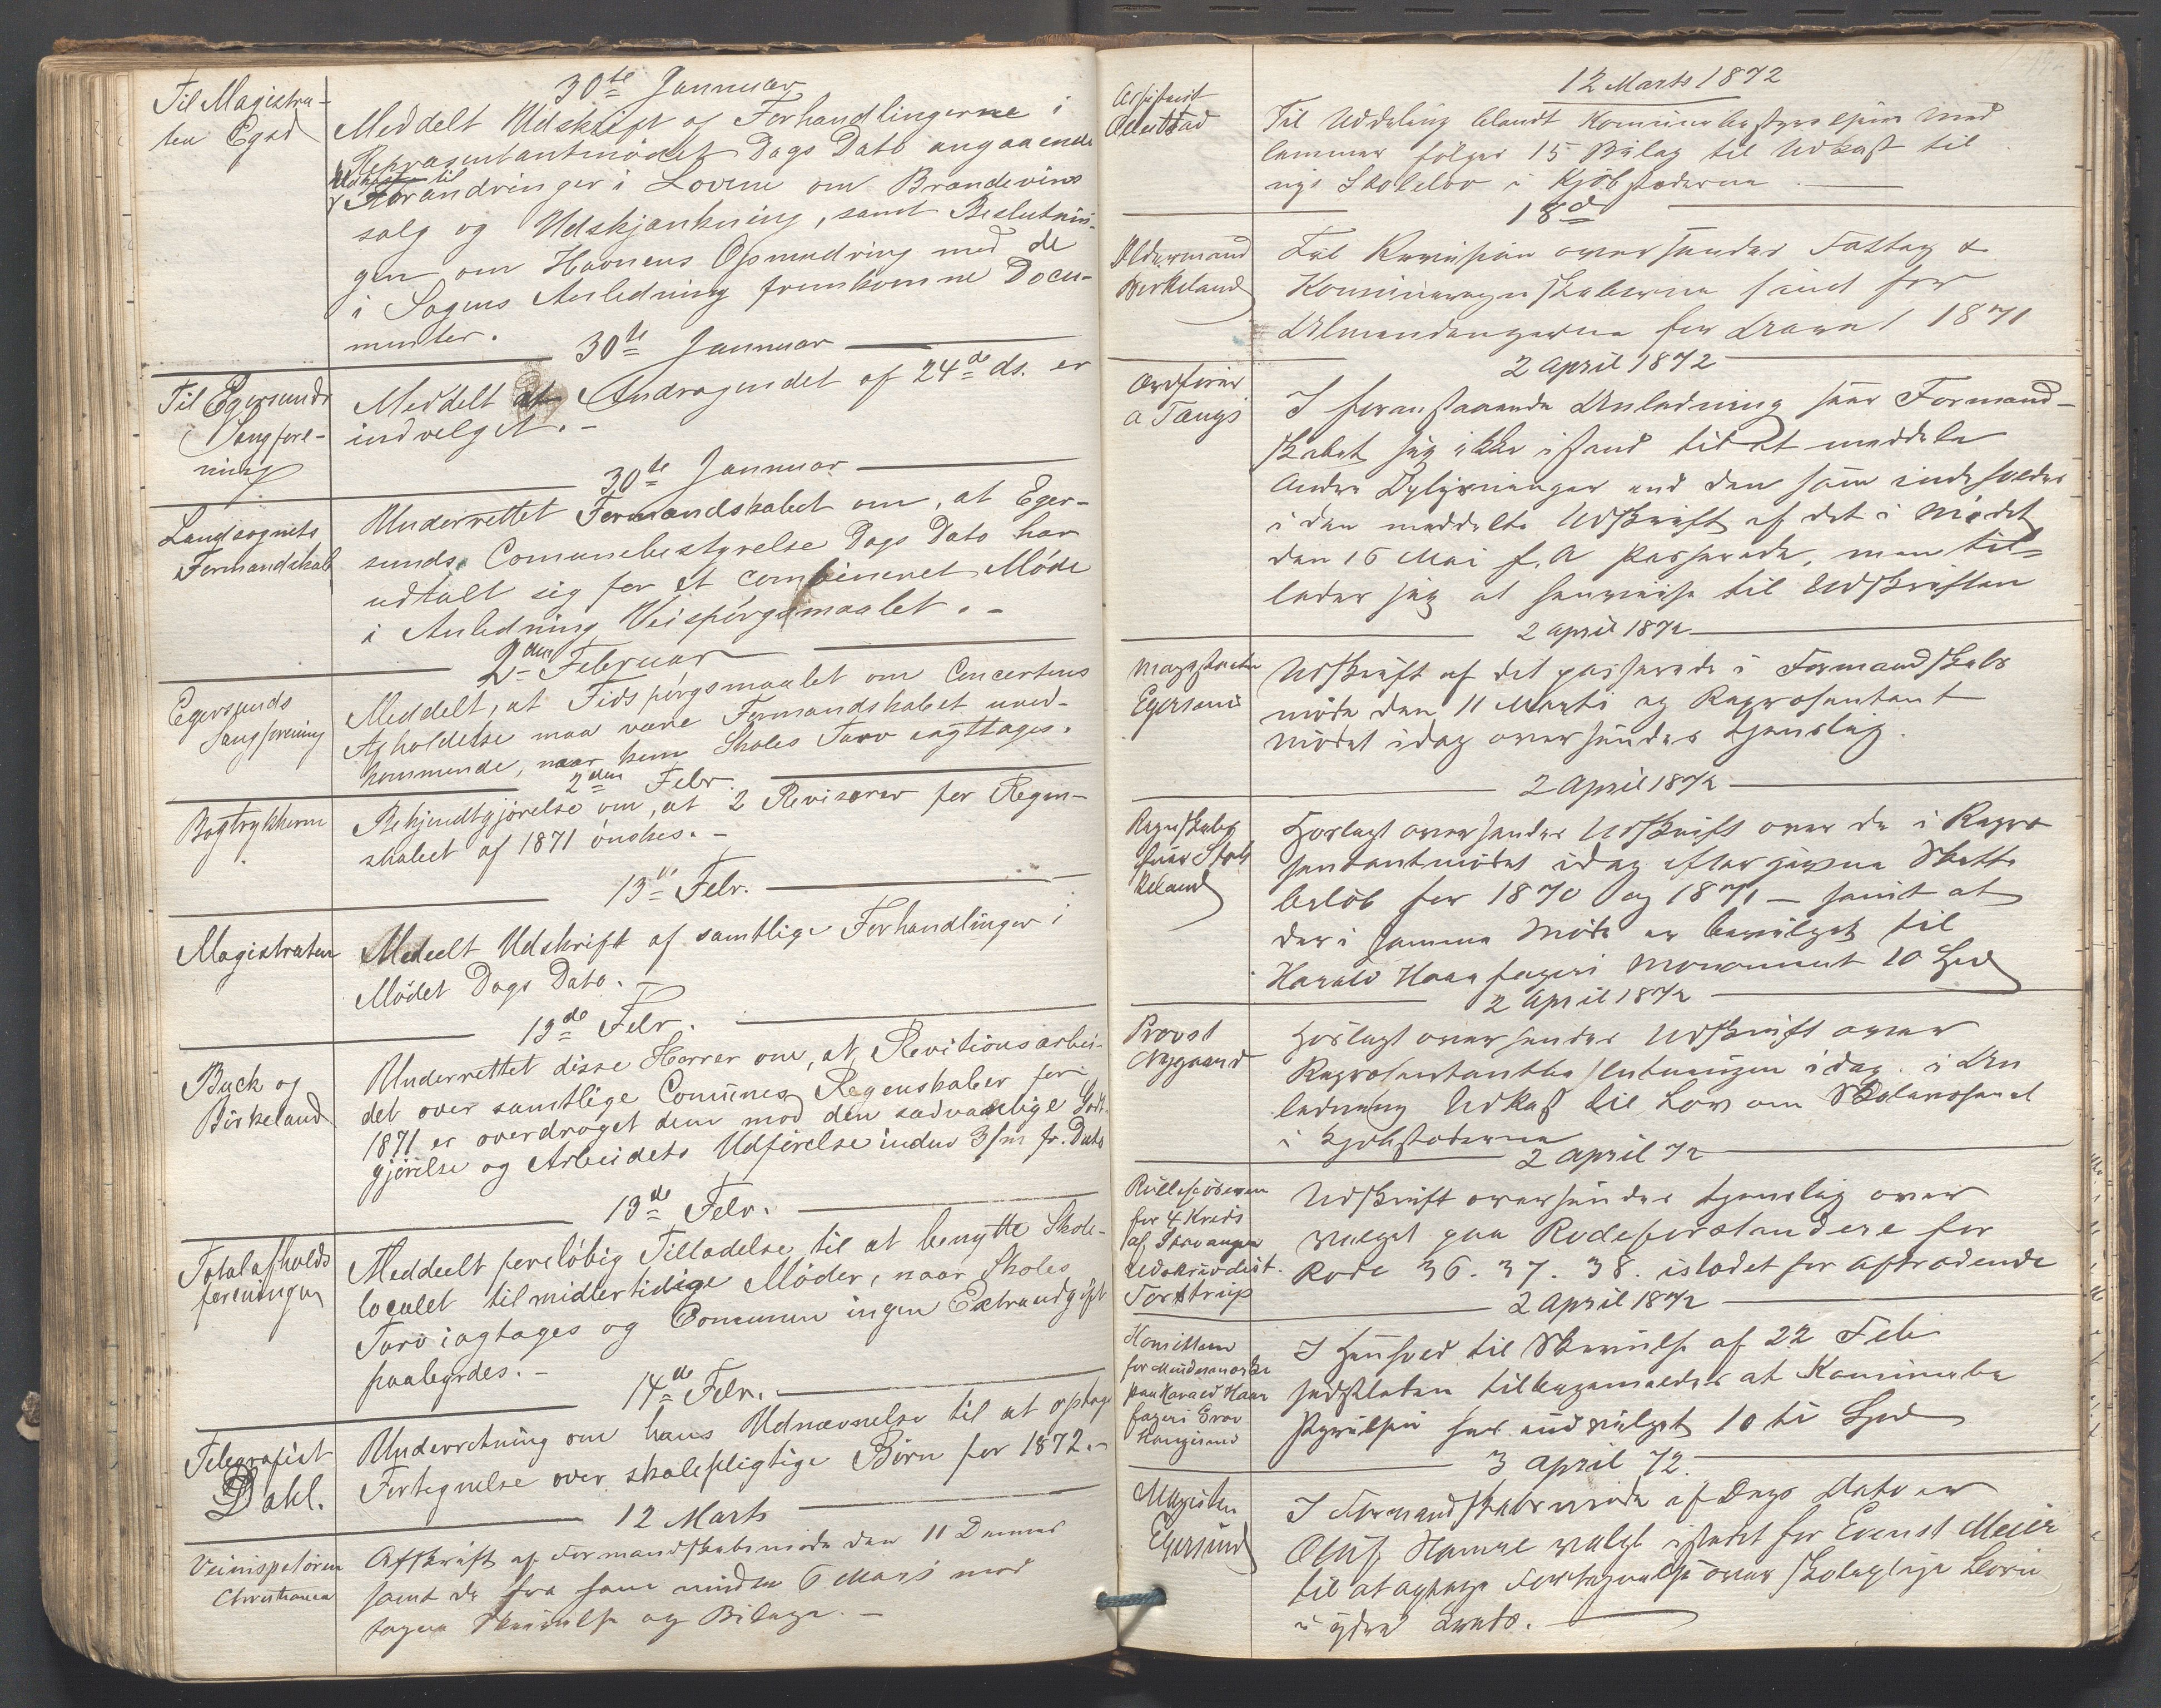 30te Januar
Til Magistra-
ten Egsd
Meddelt Udskrift af Forhandlingerne i
Repræsentantmødet Dags Dato angaaende
Udkast til
Forandringer i Lovene om Brændevins
salg og Udskjænkning, samt Beslutnin-
gen om Havnens Opmudring med de
i Sagens Anledning fremkomne Docu-
menter.
30te Januar
Til Egersunds
Sangfore-
ning
Meddelt at Andragendet af 24de ds. er
indvelget. -
30te Januar
Landsognets
Formandskab
Underrettet Formandskabet om, at Eger-
sunds Comunebestyrelse Dags Dato har
udtalt sig for et combineret Møde
i Anledning Veispørgsmaalet. -
2den Februar
Egersunds
Sangforening
Meddelt, at Tidspørgsmaalet om Concertens
Afholdelse maa være Formandskabet uved-
kommende, naar kun Skoles Tarv iagttages.
2den Febr.
Bogtrykkerne
Bekjendtgjørelse om, at 2 Revisorer for Regn-
skabet af 1871 ønskes. -
13de Febr.
Magistraten
Meddelt Udskrift af samtlige Forhandlinger i
Mødet Dags Dato. -
13de Febr.
Buck og
Birkeland
Underrettet disse Herrer om, at Revitionsarbei-
det over samtlige Comunes Regnskaber for
1871 er overdraget dem mod den sædvanlige Godt-
gjørelse og Arbeidets Udførelse inden 3/m fr. Dato
13de Febr.
Totalafholds
foreningen
Meddeelt foreløbig Tilladelse til at benytte Skole-
localet til midlertidige Møder, naar Skoles
Tarv iagtages og Comunen ingen Extraudgift
paabyrdes. -
14de Febr.
Telegrafist
Dahl.
Underretning om hans Udnævnelse til at optage
Fortegnelse over skolepligtige Børn for 1872. -
12 Marts
Veiinspetøren
Christiania
Afskrift af Formandskabsmøde den 11 Dennes
samt de fra ham under 6 Marts mod
tagne Skrivelse og Bilage. -
12 Marts 1872
Assistent
Til Uddeling blandt Kommunebestyrelsens Med
lemmer følger 15 Bilag til Udkast til
nye Skolelov i Kjøbstæderne.
18d
Oldermand
Birkeland
Til Revision oversendes Fattig &
Kommuneregnskaberne samt for
Almendingerne for Aaret 1871
2 April 1872
Ordfører
a Tengs
I foranstaaende Anledning seer Formand-
skabet sig ikke istand til at meddele
Andre Oplysninger end den som indeholdes
i den meddelte Udskrift af det i Mødet
den 16 Mai f. A passerede, men til-
lader sig at henvise til Udskriften
2 April 1872
Magistraten
Egersund
Udskrift af det passerede i Formandskabs
møde den 11 Marts og Repræsentant
mødet idag oversendes tjenslig.
2 April 1872
Regnskabs
fører
Hoslagt oversendes Udskrift over de i Repræ
sentantmødet idag eftergivne Skatte
beløb for 1870 og 1871 - samt at
der i samme Møde er bevilget til
Harald Haarfagers Monument 10 Spd
2 April 1872
Provst
Nygaard
Hoslagt oversendes Udskrift over
Repræsentantbeslutningen idag i An
ledning Udkast til Lov om Skolevæsenet
i Kjøbstæderne
2 April 72
for 4 Kreds
af Stavanger
Udskrivdist.
Tørstrup
Udskrift oversendes tjenslig over
valget paa Rodeforstandere for
Rode 36. 37. 38. istedet for Aftrædende
2 April 1872
Komitteen
for Mindesmærke
paa Harald Haar
fagers Grav
Haugesund
I Henhold til Skrivelse af 22 Feb
sidstleden tilbagemeldes at Kommunebe
styrelsen har indvilget 10 ti Spd
3 April 72.
Magistra
Egersund
I Formandskabsmøde af Dags Dato er
Oluf Hamre valgt istedet for Evenst Meier
til at optage Fortegnelse over skolepligtige Børn
i ydre Kreds.